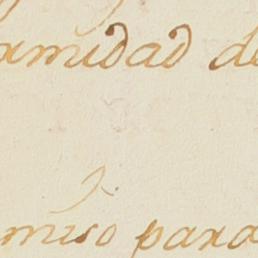 amidad de
miso para